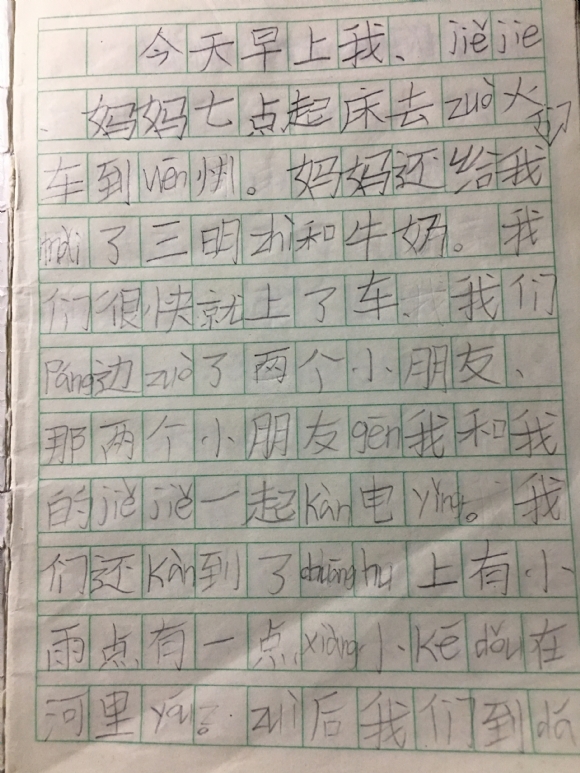 今天早上我、jiě jie
、妈妈七点起床去zuò火
车到 快。妈妈还给我
mǎi了三明zhì和牛奶。我
们很快就上了车、我们
páng边zuò了两个小朋友、
那两个小朋友gēn我和我
的jiě jiě一起kàn电yǐng。我
们还kàn到了chuāng hu上有小
雨点有一点xiàng小kē dǒu在
河里yóu。zuì后我们到dá